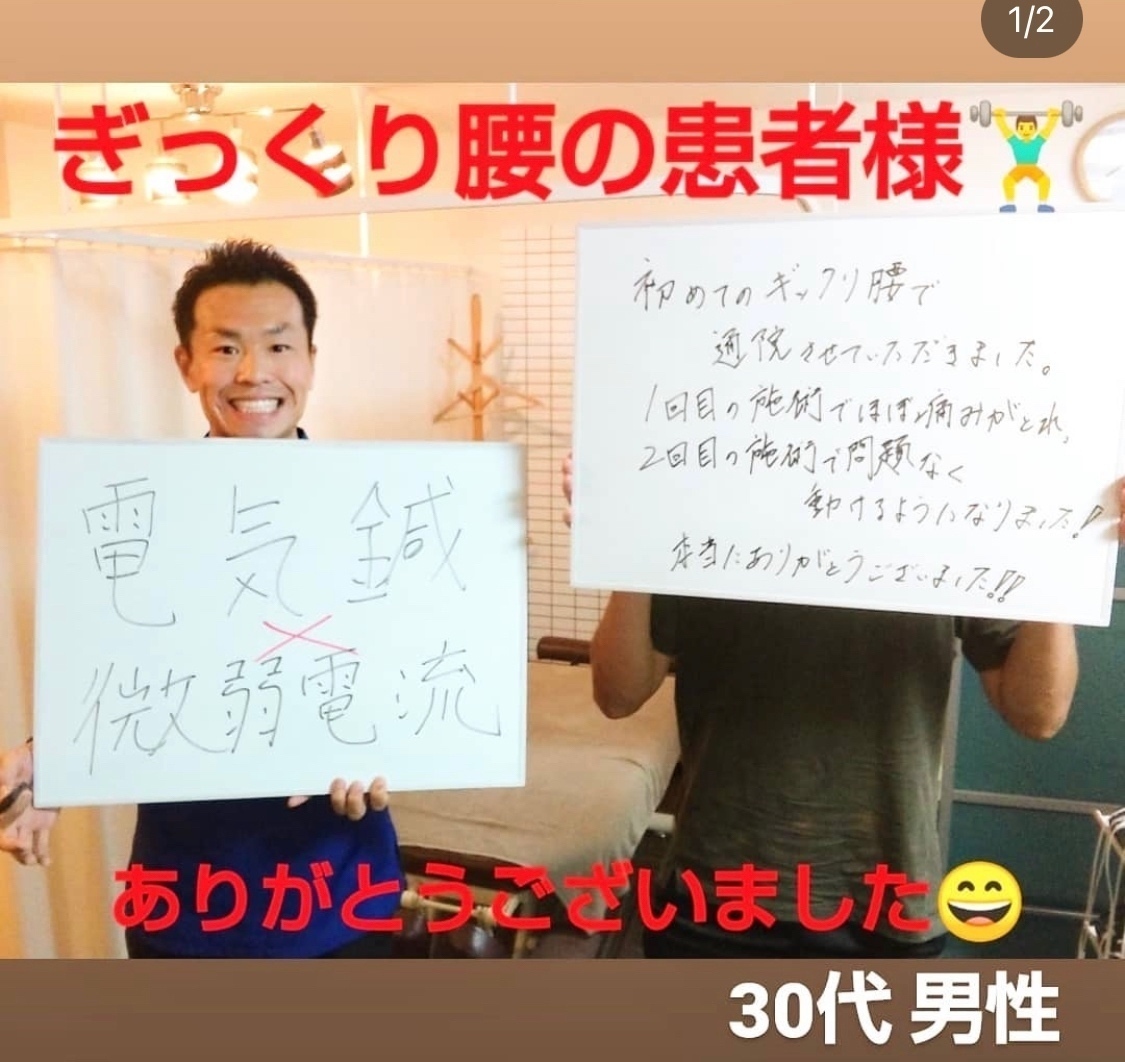 1/2
ぎっくり腰の患者様
初めてのギックリ腰で
通院させていただきました。
1回目の施術でほぼ痛みがとれ、
2回目の施術で問題なく
動けるようになりました!
本当にありがとうございました!!
電気鍼
×
微弱電流
ありがとうございました
30代 男性